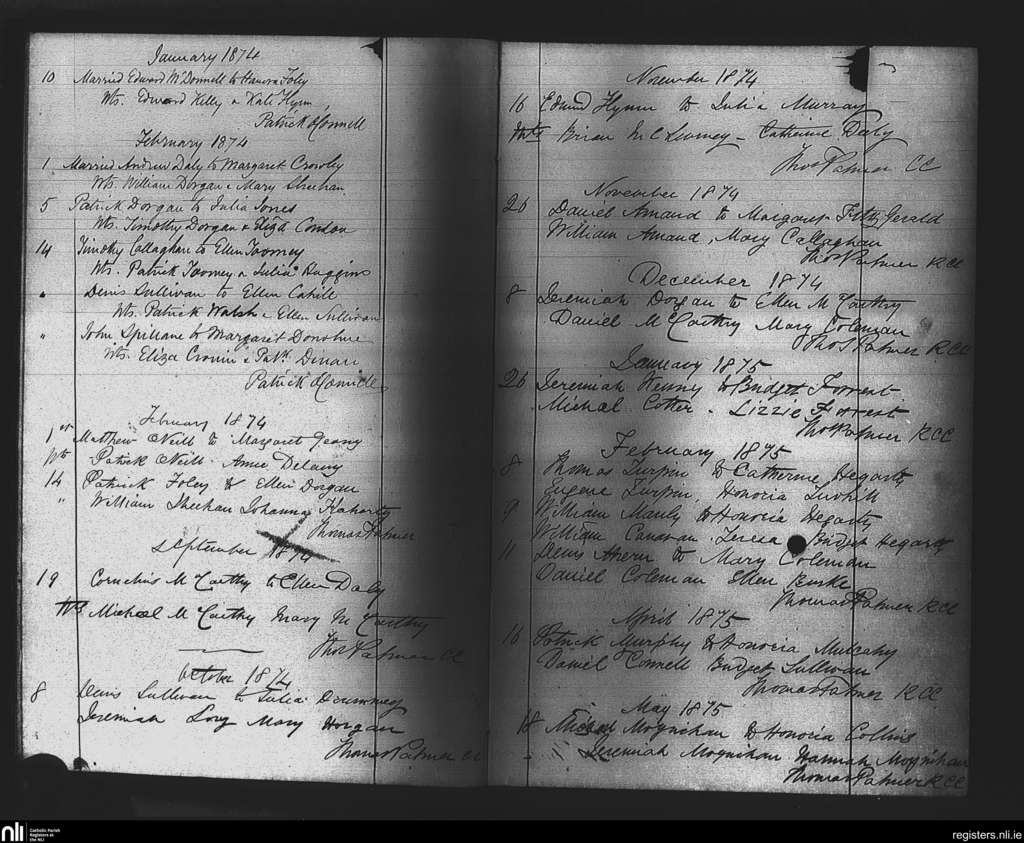 January 1874
10 Married Edward McDonnell to Hanora Foley
Wts. Edward Kelly & Kate Flynn
Patrick O'Connell
February 1874
1 Married Andrew Daly to Margaret Crowly
Wts. William Dorgan & Mary Sheehan
5 Patrick Dorgan to Julia Jones
Wts. Timothy Dorgan & Eliza Condon
14 Timothy Callaghan to Ellen Toomey
Wts. Patrick Toomey & Julia Huggins
" Denis Sullivan to Ellen Cahill
Wts. Patrick Walsh & Ellen Sullivan
" John Spillane to Margaret Donohue
Wts. Eliza Cronin & Patk. Dinan
Patrick O'Connell
February 1874
1st Matthew O'Neill to Margaret Geany
Wts Patrick O'Neill Annie Delany
14 Patrick Foley to Ellen Dorgan
" William Sheehan Johanna Flaherty
Thomas Palmer
September 1874
19 Cornelius McCarthy to Ellen Daly
Wts Michael McCarthy Mary McCarthy
Thos Palmer CC
October 1874
8 Denis Sullivan to Julia
Jeremiah Long Mary Horgan
Thomas Palmer CC
November 1874
16 Edmund Flynn to Julia Murray
Wts Brian McSweeney - Catherine Daly
Thos Palmer CC
November 1874
26 Daniel Amaud to Margaret FitzGerald
William Amaud, Mary Callaghan
Thos Palmer RCC
December 1874
8 Jeremiah Dorgan to Ellen McCarthy
Daniel McCarthy Mary Coleman
Thos Palmer RCC
January 1875
26 Jeremiah Kenny to Bridget Forrest
Michael Cotter. Lizzie Forrest
Thos Palmer RCC
February 1875
8 Thomas Turpin to Catherine Hegarty
Eugene Turpin, Honoria
9 William Manly to Honoria Hegarty
William Canavan. Teresa Bridget Hegarty
11 Denis Ahern to Mary Coleman
Daniel Coleman Ellen Burke
Thomas Palmer RCC
April 1875
16 Patrick Murphy to Honoria Mulcahy
Daniel Connell Bridget Sullivan
Thomas Palmer RCC
May 1875
18 Michael Moynihan to Honoria Collins
Jeremiah Moynihan Hannah Moynihan
Thomas Palmer RCC
nli Catholic Parish
Registers at
the NLI
registers.nli.ie